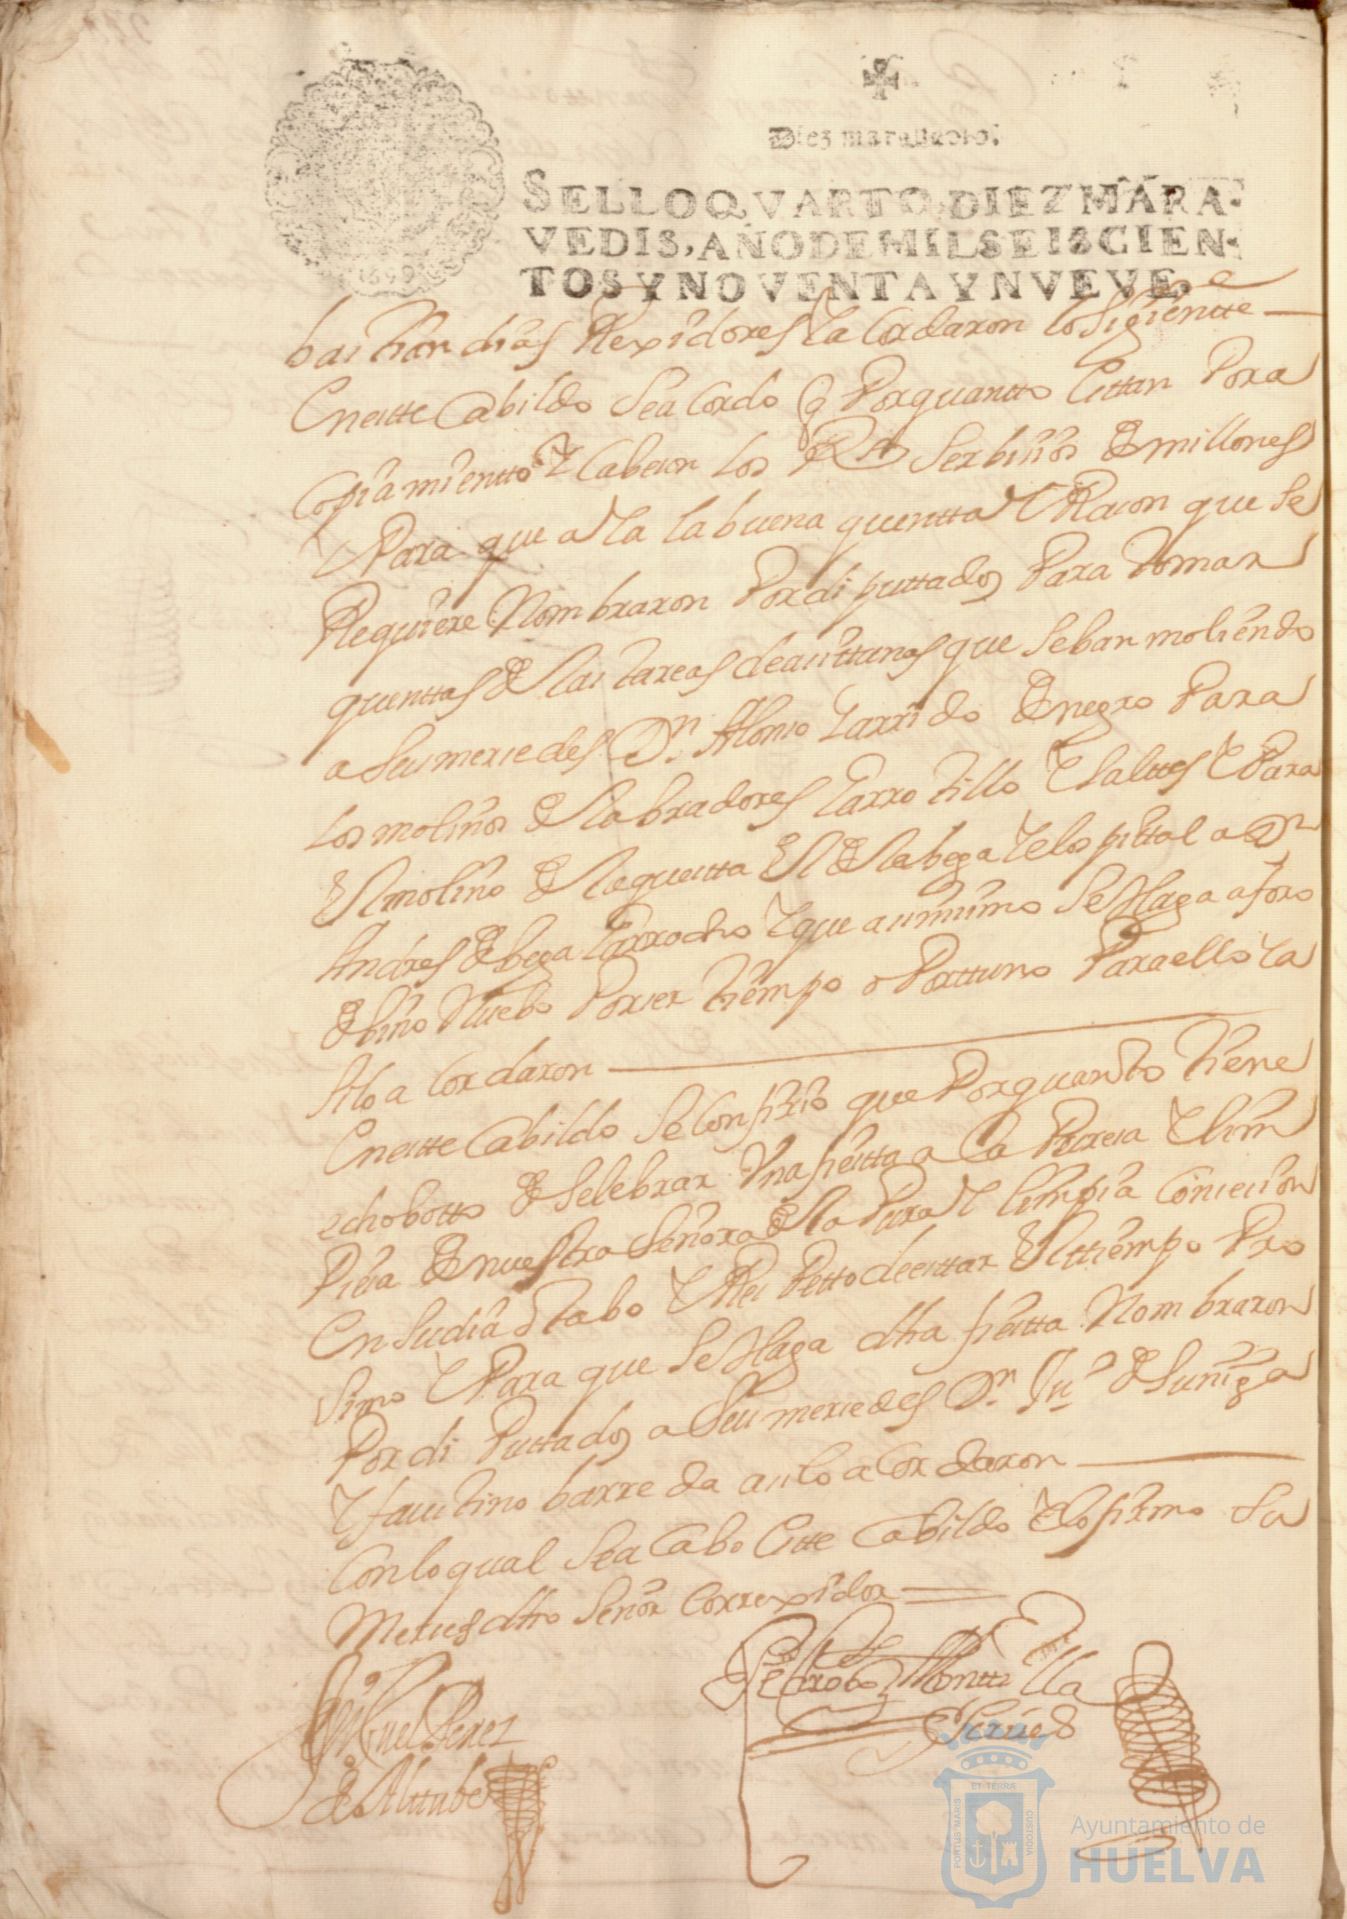 Diez maravedis.
SELLO QVARTO, DIEZ MARA-
VEDIS, AÑO DE MIL SEISCIEN-
TOS Y NOVENTA Y NVEVE.
1699
bastian dias Rexidores Y acordaron lo siguientte
En estte Cabildo Se a Cordo q Por quantto Esttan Por a
Copiamientto Y Cabeson los Rs Serbisios de millones
Y Para que aYa la buena quentta Y Racon que se
Requiere Nombraron Por di puttados Para tomar
quenttas de las tareas de aseittunas que se ban moliendo
a Sus mercedes Dn. Alonso Garrido de negro Para
los molinos de labradores Garrotillo Y Salttes Y Para
El molino de la questta El de la bega Y el ospittal a Dn
Andres de bega Garrocho Y que asimismo Se Haga aforo
de bino Nuebo Por ser tiempo o Porttuno Para ello Y a
silo a Cordaron
En estte Cabildo Se Confirio que Por quantto tiene
echo botto de Selebrar Una fiestta a la Pureza Y lim
Piesa de nuestra Señora de la Pura Y limpia Concecion
En su dia Octabo Y Res Petto de esttar El ttiempo Pro
simo Y Para que Se Haga dha fiestta Nombraron
Por di Puttados a Sus mercedes Dn. Juº de Suñiga
Y faustino barreda asi lo a Cordaron
Con lo qual Se a Cabo Estte Cabildo Y lo firmo Su
Merced dho Señor Correxidor
Miguel Perez
de Alttube
Pedro bo Monttilla
PORTUS MARIS
ET TERRÆ
CUSTODIA
Ayuntamiento de
HUELVA